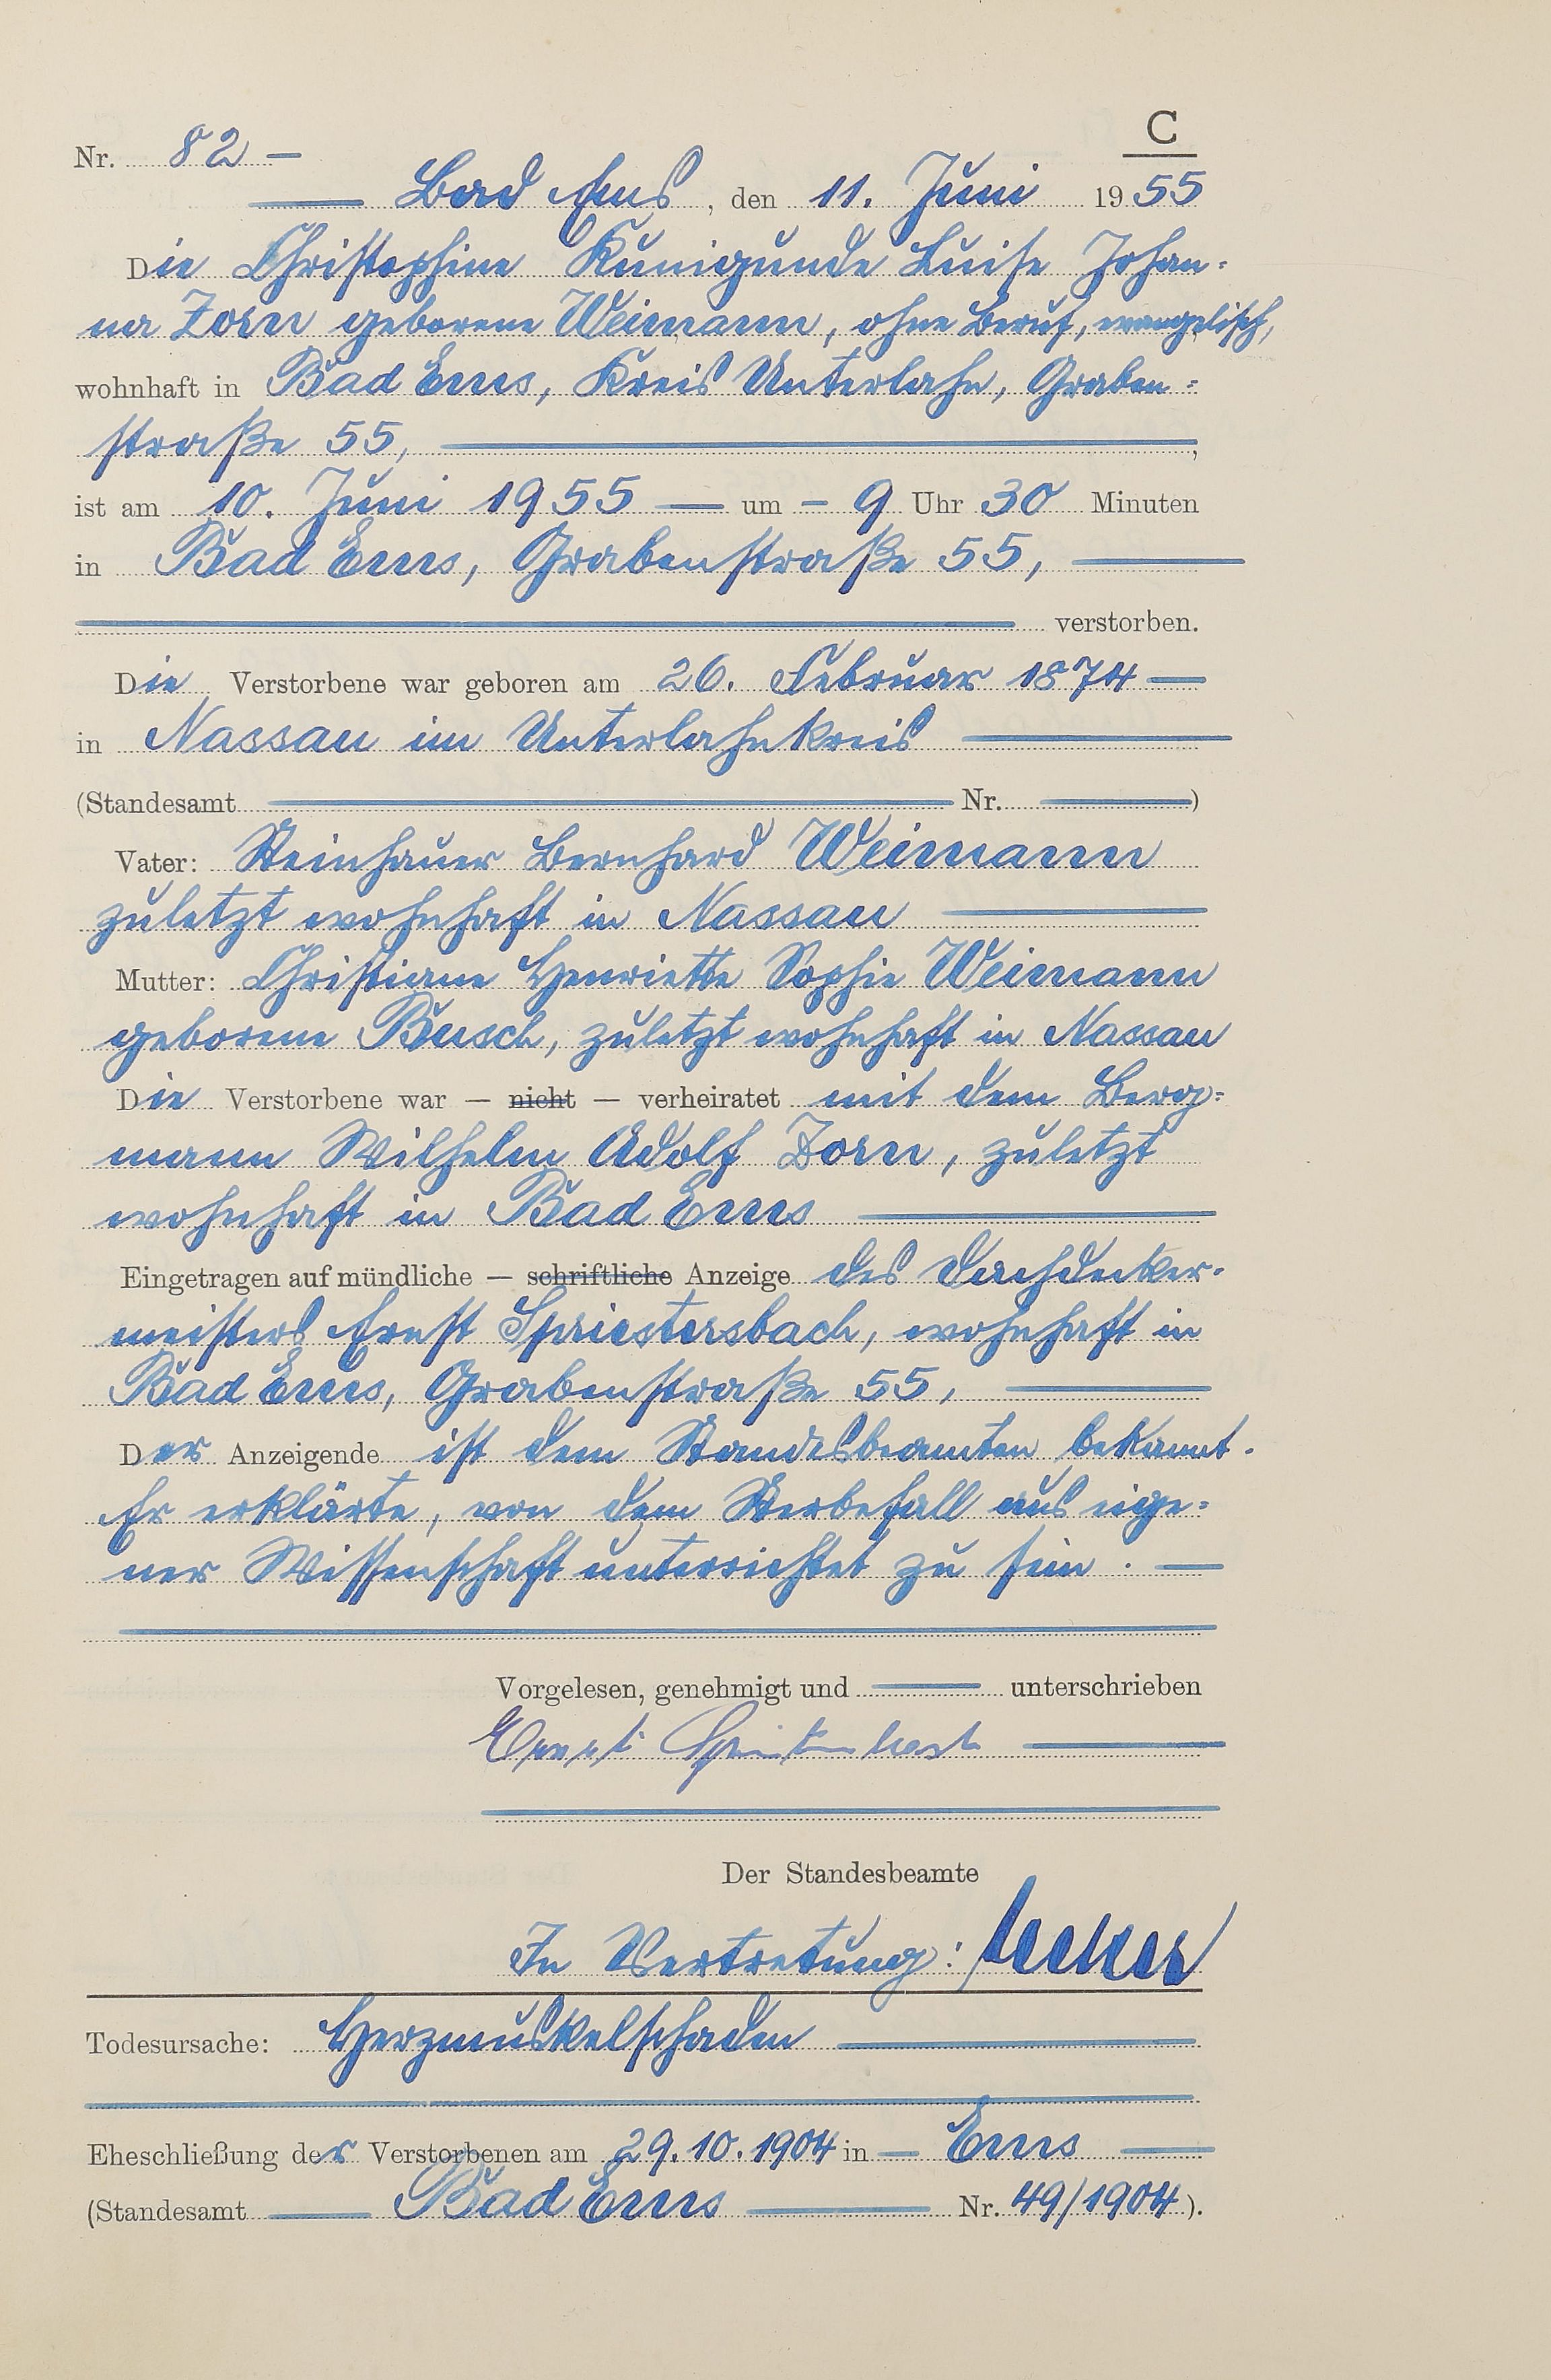 C
Nr. 82 –
— Bad Ems, den 11. Juni 1955
Die Christophine Kunigunde Luise Johan-
na Zorn geborene Weimann, ohne Beruf, evangelisch,
wohnhaft in Bad Ems, Kreis Unterlahn, Graben-
straße 55, —,
ist am 10. Juni 1955 — um – 9 Uhr 30 Minuten
in Bad Ems, Grabenstraße 55, —
— verstorben.
Die Verstorbene war geboren am 26. Februar 1874 —
in Nassau im Unterlahnkreis —
(Standesamt — Nr. —)
Vater: Steinhauer Bernhard Weimann
zuletzt wohnhaft in Nassau —
Mutter: Christiane Henriette Sophie Weimann
geborene Busch, zuletzt wohnhaft in Nassau
Die Verstorbene war — nicht — verheiratet mit dem Berg-
mann Wilhelm Adolf Zorn, zuletzt
wohnhaft in Bad Ems —
Eingetragen auf mündliche — schriftliche Anzeige des Dachdecker-
meisters Ernst Spriestersbach, wohnhaft in
Bad Ems, Grabenstraße 55, —
Der Anzeigende ist dem Standesbeamten bekannt.
Er erklärte, von dem Sterbefall aus eige-
ner Wissenschaft unterrichtet zu sein. —
Vorgelesen, genehmigt und — unterschrieben
Ernst Spriestersbach —
Der Standesbeamte
In Vertretung:
Todesursache: Herzmuskelschaden —
Eheschließung der Verstorbenen am 29.10.1904 in — Ems —
(Standesamt — Bad Ems — Nr. 49/1904).